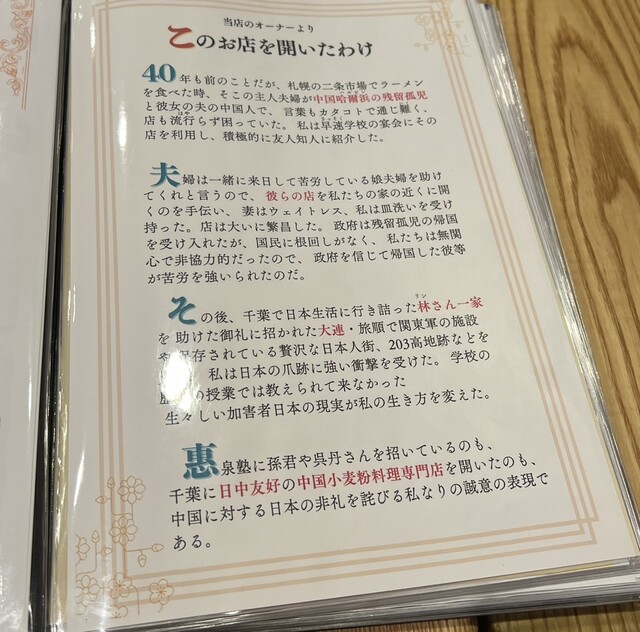 当店のオーナーより
このお店を開いたわけ
40年も前のことだが、札幌の二条市場でラーメン
を食べた時、そこの主人夫婦が中国哈爾浜の残留孤児
と彼女の夫の中国人で、言葉もカタコトで通じ難く、
店も流行らず困っていた。私は早速学校の宴会にその
店を利用し、積極的に友人知人に紹介した。
夫婦は一緒に来日して苦労している娘夫婦を助け
てくれと言うので、彼らの店を私たちの家の近くに開
くのを手伝い、妻はウェイトレス、私は皿洗いを受け
持った。店は大いに繁昌した。政府は残留孤児の帰国
を受け入れたが、国民に根回しがなく、私たちは無関
心で非協力的だったので、政府を信じて帰国した彼等
が苦労を強いられたのだ。
その後、千葉で日本生活に行き詰った林さん一家
を助けた御礼に招かれた大連・旅順で関東軍の施設
や保存されている贅沢な日本人街、203高地跡などを
私は日本の爪跡に強い衝撃を受けた。学校の
の授業では教えられて来なかった
生々しい加害者日本の現実が私の生き方を変えた。
惠泉塾に孫君や呉丹さんを招いているのも、
千葉に日中友好の中国小麦粉料理専門店を開いたのも、
中国に対する日本の非礼を詫びる私なりの誠意の表現で
ある。